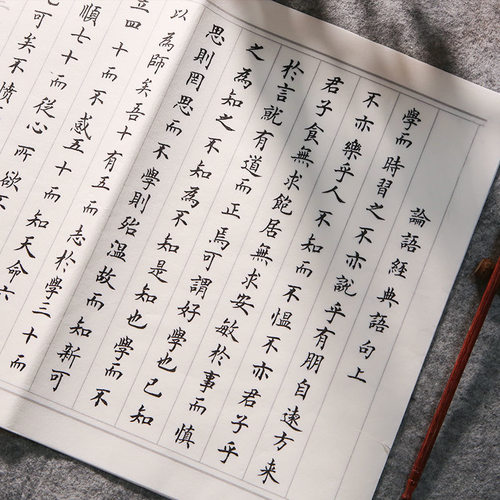 論語經典語句上
學而時習之不亦說乎有朋自遠方來
不亦樂乎人不知而不慍不亦君子乎
君子食無求飽居無求安敏於事而慎
於言就有道而正焉可謂好學也已知
之為知之不知為不知是知也學而不
思則罔思而不學則殆溫故而知新可
以為師矣吾十有五而志於學三十而
立四十而不惑五十而知天命六
順七十而從心所欲不
可矣不憤